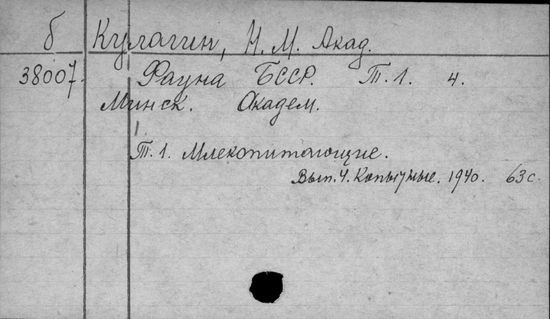 б Кулагин, Н. М. Акад.
38007. Фауна БССР. Т. 1. 4.
Минск. Академ.
Т. 1. Млекопитающие.
Вып. 4. Копытные. 1940. 63 с.